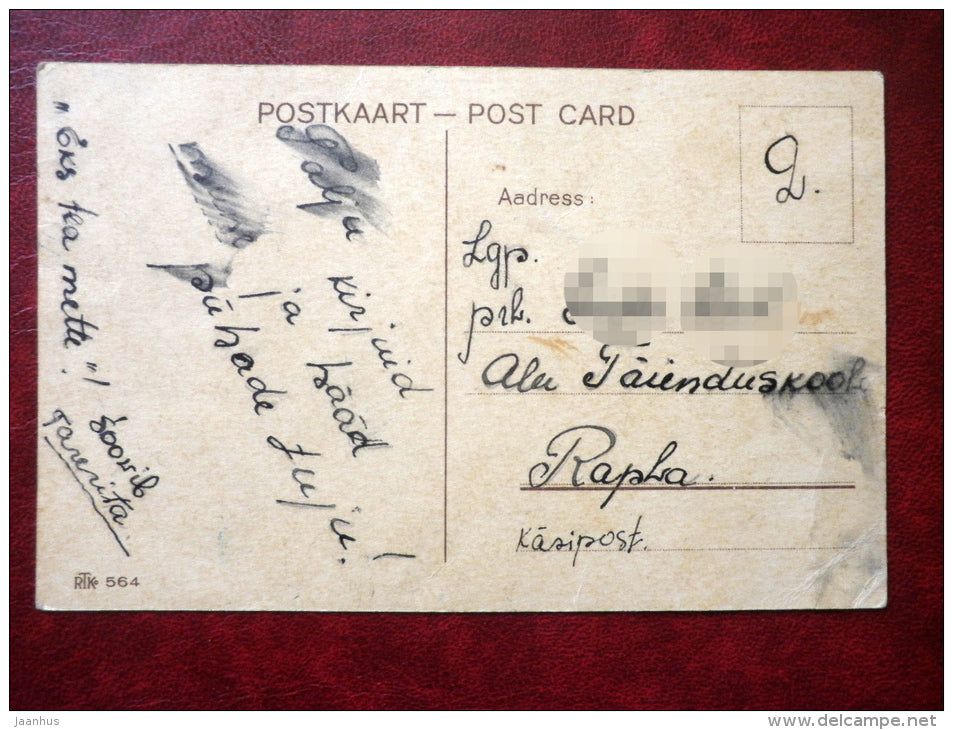 POSTKAART — POST CARD
Palju kirjuid
ja hääd
pühade tuju!
"Eks tea mette."!
Soovib
2.
Aadress:
Lgp.
prl.
Alu Täienduskool
Rapla.
Käsipost.
RTK 564
jaanhus
www.delcampe.net